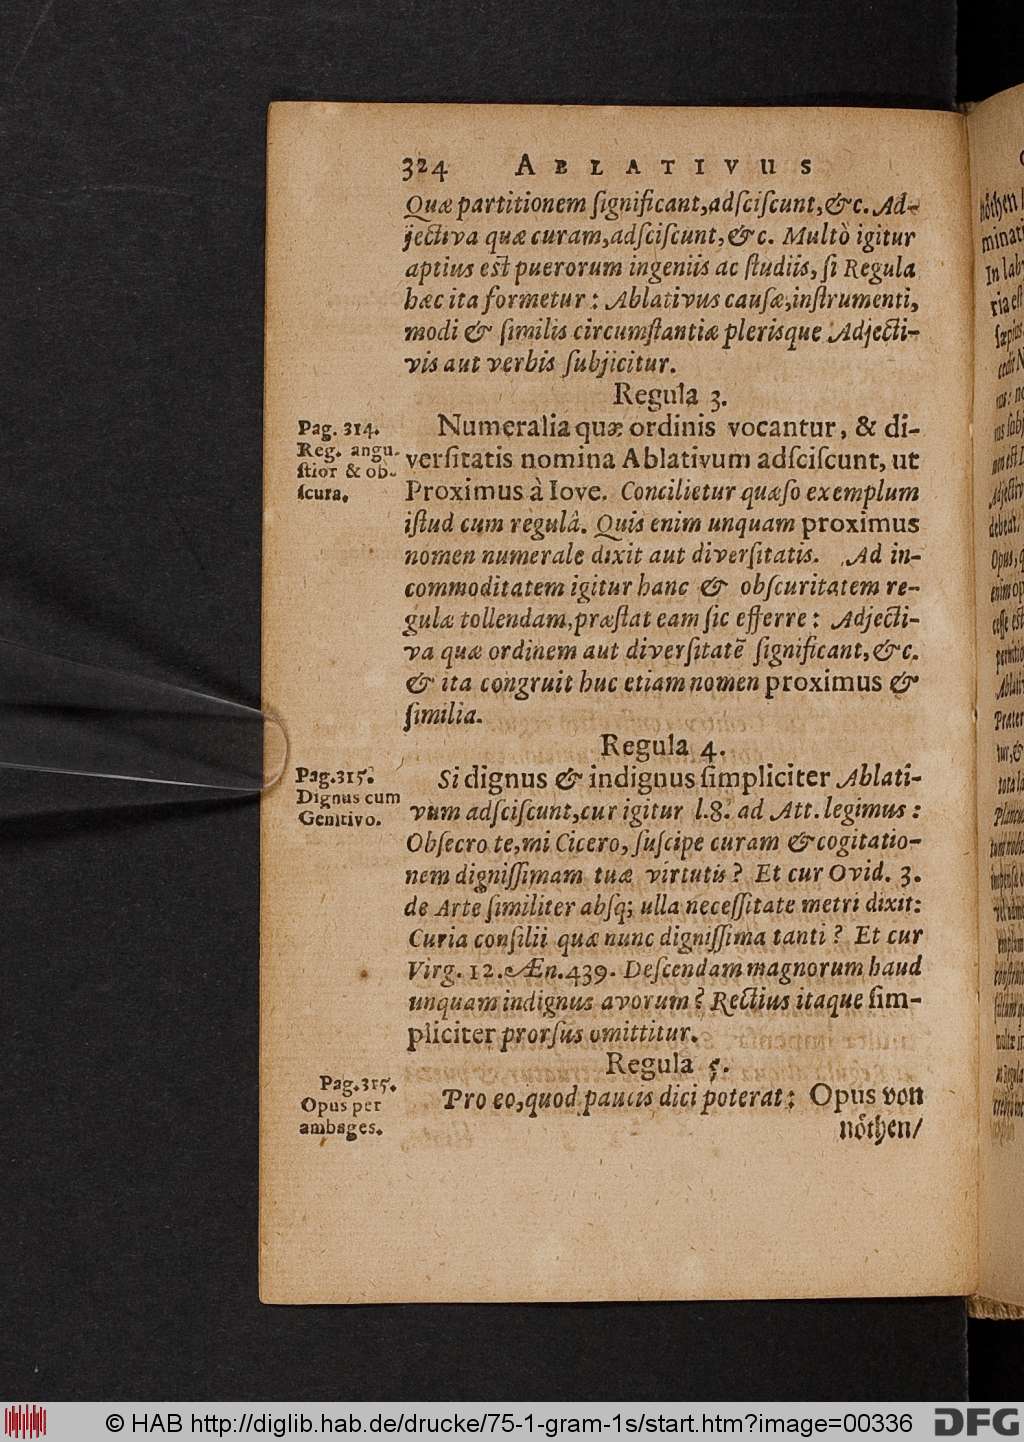 324 ABLATIVUS
Quæ partitionem ſignificant,adſciſcunt,&c. Ad-
jectiva quæ curam,adſciſcunt,&c. Multò igitur
aptius eſt puerorum ingeniis ac ſtudiis, ſi Regula
hæc ita formetur: Ablativus cauſæ,inſtrumenti,
modi & ſimilis circumſtantiæ plerisque Adjecti-
vis aut verbis ſubjicitur.
Regula 3.
Pag. 314.
Reg. angu-
ſtior & ob-
ſcura.
Numeralia quæ ordinis vocantur, & di-
verſitatis nomina Ablativum adſciſcunt, ut
Proximus à Iove. Concilietur quæſo exemplum
iſtud cum regulâ. Quis enim unquam proximus
nomen numerale dixit aut diverſitatis. Ad in-
commoditatem igitur hanc & obſcuritatem re-
gulæ tollendam,præſtat eam ſic efferre: Adjecti-
va quæ ordinem aut diverſitatē ſignificant,&c.
& ita congruit huc etiam nomen proximus &
ſimilia.
Regula 4.
Pag.315.
Dignus cum
Genitivo.
Si dignus & indignus ſimpliciter Ablati-
vum adſciſcunt,cur igitur l.8. ad Att. legimus:
Obſecro te,mi Cicero, ſuſcipe curam & cogitatio-
nem digniſſimam tuæ virtutis? Et cur Ovid. 3.
de Arte ſimiliter abſq; ulla neceſſitate metri dixit:
Curia conſilii quæ nunc digniſſima tanti? Et cur
Virg. 12. Æn.439. Deſcendam magnorum haud
unquam indignus avorum? Rectius itaque ſim-
pliciter prorſus omittitur.
Regula 5.
Pag.315.
Opus per
ambages.
Pro eo,quod paucis dici poterat: Opus von
nöthen/
© HAB http://diglib.hab.de/drucke/75-1-gram-1s/start.htm?image=00336
DFG